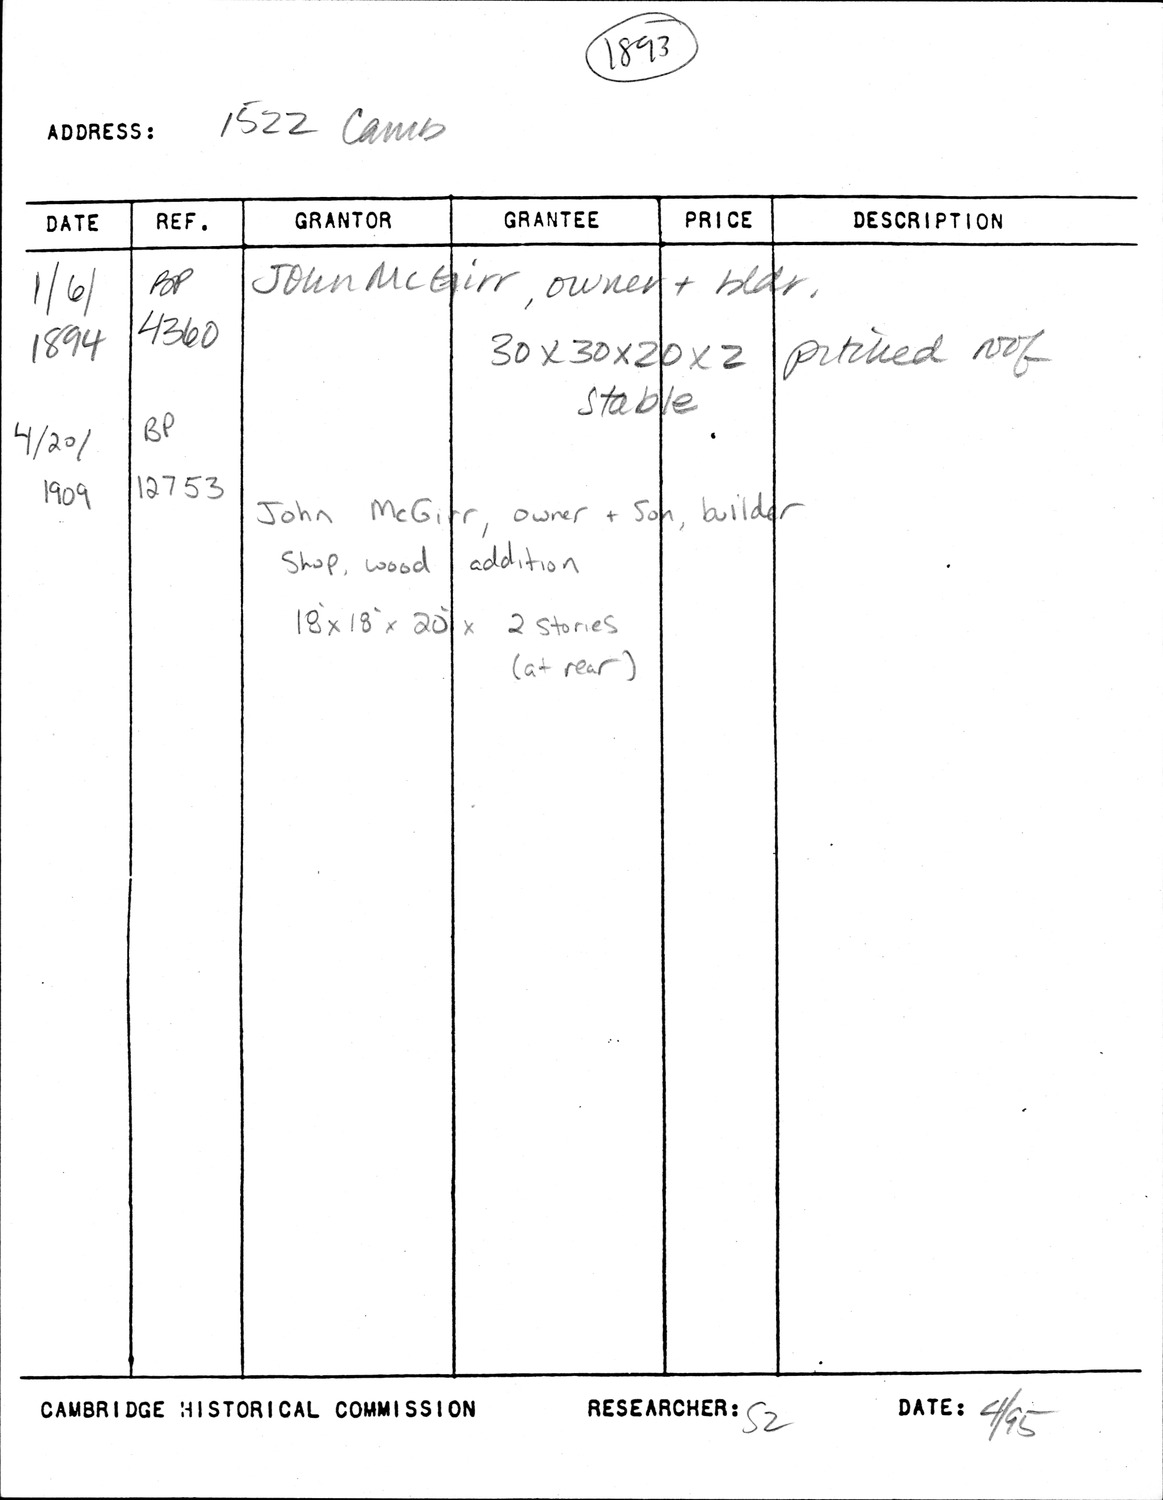 1893
ADDRESS: 1522 Camb
DATE REF. GRANTOR GRANTEE PRICE DESCRIPTION
1/6/ BP John McGirr, owner + bldr.
1894 4360 30 x 30 x 20 x 2 pitched roof
stable
4/20/ BP
1909 12753
John McGirr, owner + Son, builder
Shop, wood addition
18' x 18' x 20' x 2 stories
(at rear)
CAMBRIDGE HISTORICAL COMMISSION RESEARCHER: SZ DATE: 4/95